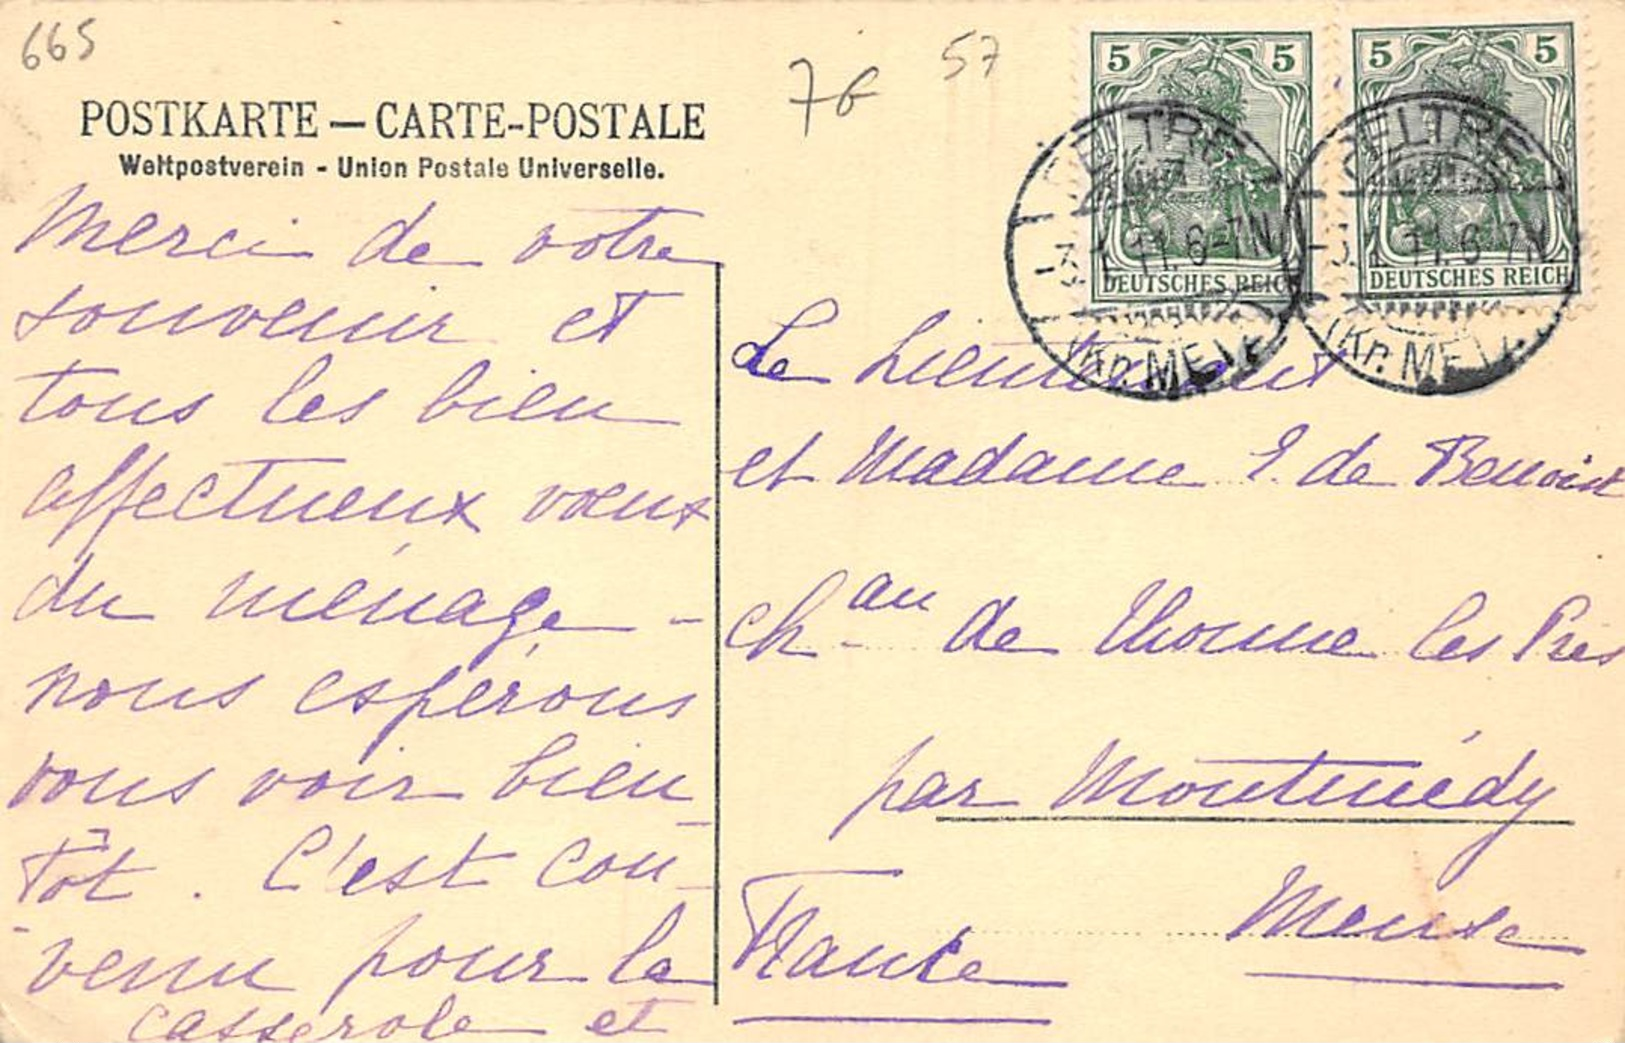 665
57
76
POSTKARTE — CARTE-POSTALE
Weltpostverein - Union Postale Universelle.
5 5
DEUTSCHES REICH
5 5
DEUTSCHES REICH
PELTRE
-3.1.11.6-7N
(Kr. METZ)
PELTRE
-3.1.11.6-7N
(Kr. METZ)
Merci de votre
souvenir et
tous les bien
affectueux vœux
du ménage -
nous espérons
vous voir bien-
tôt. C'est con-
-venu pour la
casserole et
Le Lieutenant
et Madame E. de Benoist
chau de Thonne les Prés
par Montmédy
Meuse
France